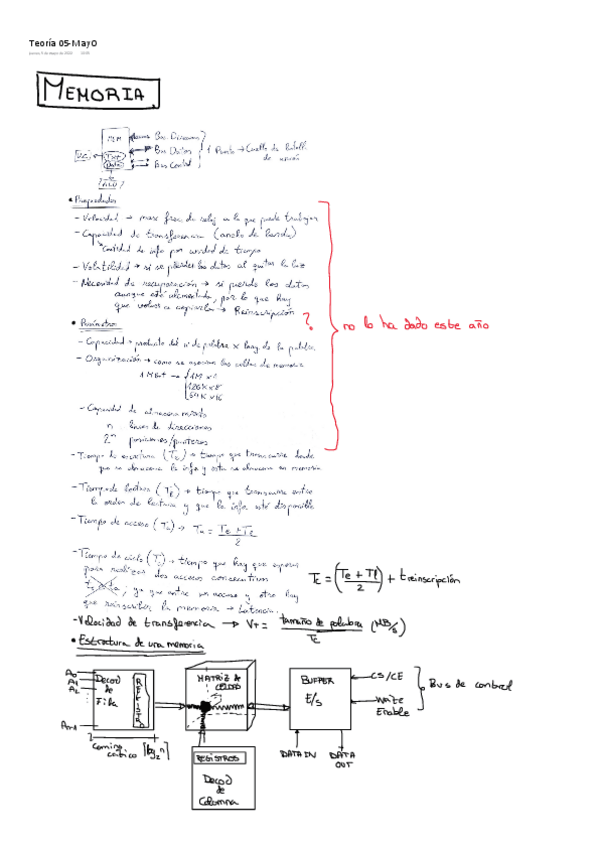 Teoría 05-Mayo
MEMORIA.
MEM
Bus Direcciones
Bus Datos
Bus Control
1 Puerto → Cuello de botella
• Propiedades
- Velocidad → max frec de reloj en la que puede trabajar
- Capacidad de transferencia (ancho de banda)
Cantidad de info por unidad de tiempo
- Volatilidad → si se pierden los datos al quitar la luz
- Necesidad de recuperación → si pierde los datos
aunque esté alimentada, por lo que hay
que volver a copiarla → Reinscripción
?
no lo ha dado este año
• Parámetros
- Capacidad → producto del nº de palabras x long. de la palabra.
- Organización → como se asocian las celdas de memoria
1 MBit → 1M x
128K x 8
64K x 16
- Capacidad de almacenamiento
n líneas de direcciones
2ⁿ posiciones/punteros
- Tiempo de escritura (Te) → tiempo que transcurre desde
que se almacena la info y esta se almacena en memoria
- Tiempo de lectura (Tl) → tiempo que transcurre entre
la orden de lectura y que la info esté disponible
- Tiempo de acceso (Ta) → Ta = Te + Tl / 2
- Tiempo de ciclo (Tc) → tiempo que hay que esperar
para realizar dos accesos consecutivos
ya que entre un acceso y otro hay
que reinscribir la memoria →
Tc = (Te + Tl / 2) + treinscripción
- Velocidad de transferencia → VT = tamaño de palabra / Tc (MB/s)
• Estructura de una memoria
A0
A1
A2
An-1
Decod
de
Fila
MATRIZ de
CELDAS
BUFFER
E/S
CS/CE
Write
Enable
Bus de control
Camino
crítico
log2 n
REGISTROS
Decod
de
Columna
DATA IN
DATA
OUT